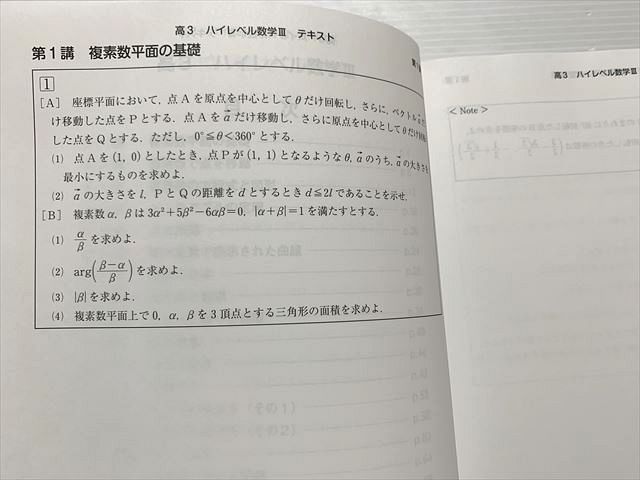 高3 ハイレベル数学Ⅲ テキスト
第1講 複素数平面の基礎
1
[A] 座標平面において, 点Aを原点を中心としてθだけ回転し, さらに, ベクトル
け移動した点をPとする. 点Aを a→ だけ移動し, さらに原点を中心としてθだけ回転
した点をQとする. ただし, 0°≦θ<360° とする.
(1) 点Aを (1, 0) としたとき, 点Pが (1, 1) となるような θ, a→ のうち, a→ の大きさを
最小にするものを求めよ.
(2) a→ の大きさを l, PとQの距離を d とするとき d≦2l であることを示せ.
[B] 複素数 α, β は 3α²+5β²−6αβ=0, |α+β|=1 を満たすとする.
(1) α/β を求めよ.
(2) arg((β−α)/β) を求めよ.
(3) |β| を求めよ.
(4) 複素数平面上で 0, α, β を3頂点とする三角形の面積を求めよ.
高3 ハイレベル数学Ⅲ
< Note >